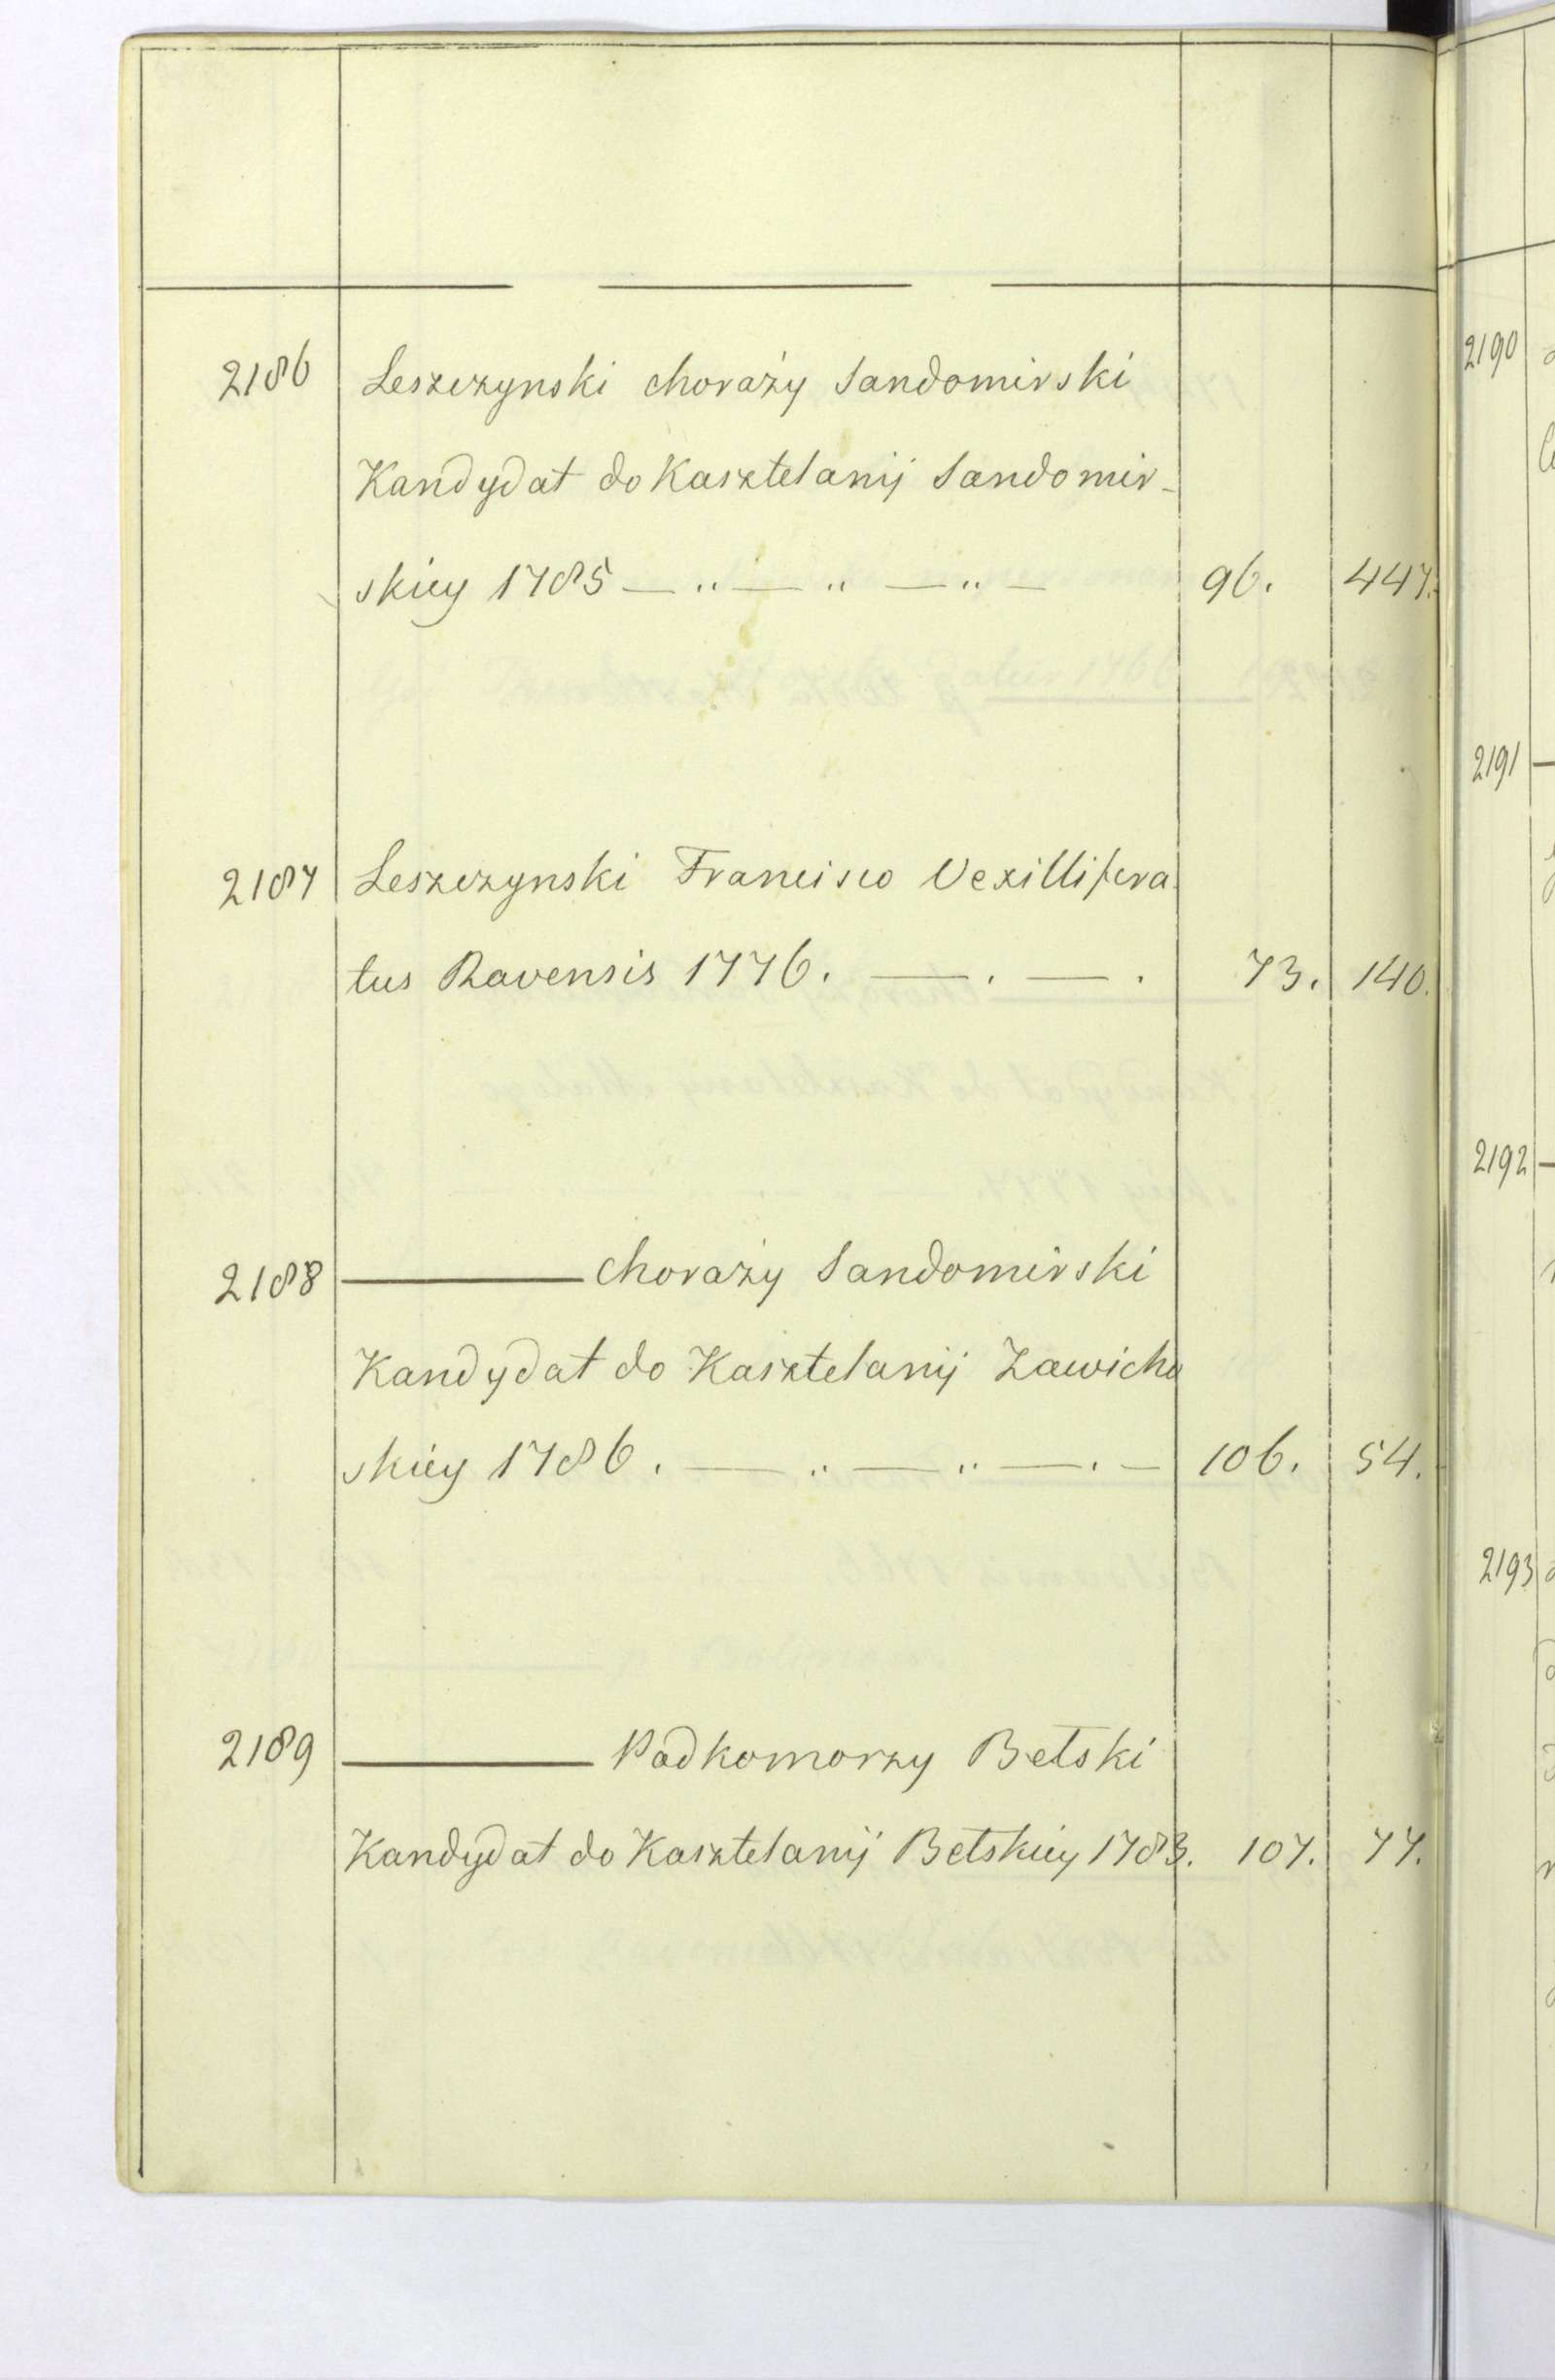 2186 Leszczynski chorąży Sandomirski
Kandydat do Kasztelanij Sandomir-
skiey 1785 — „ — „ — „ — 96. 447.
2187 Leszczynski Francisco Vexillifera
tus Ravensis 1776. — . — . 73. 140.
2188 ——— chorąży Sandomirski
Kandydat do Kasztelanij Zawicho
skiey 1786. — „ — „ — . — 106. 54.
2189 ——— Podkomorzy Bełski
Kandydat do Kasztelanij Bełskiey 1783. 107. 77.
2190
2191
2192
2193